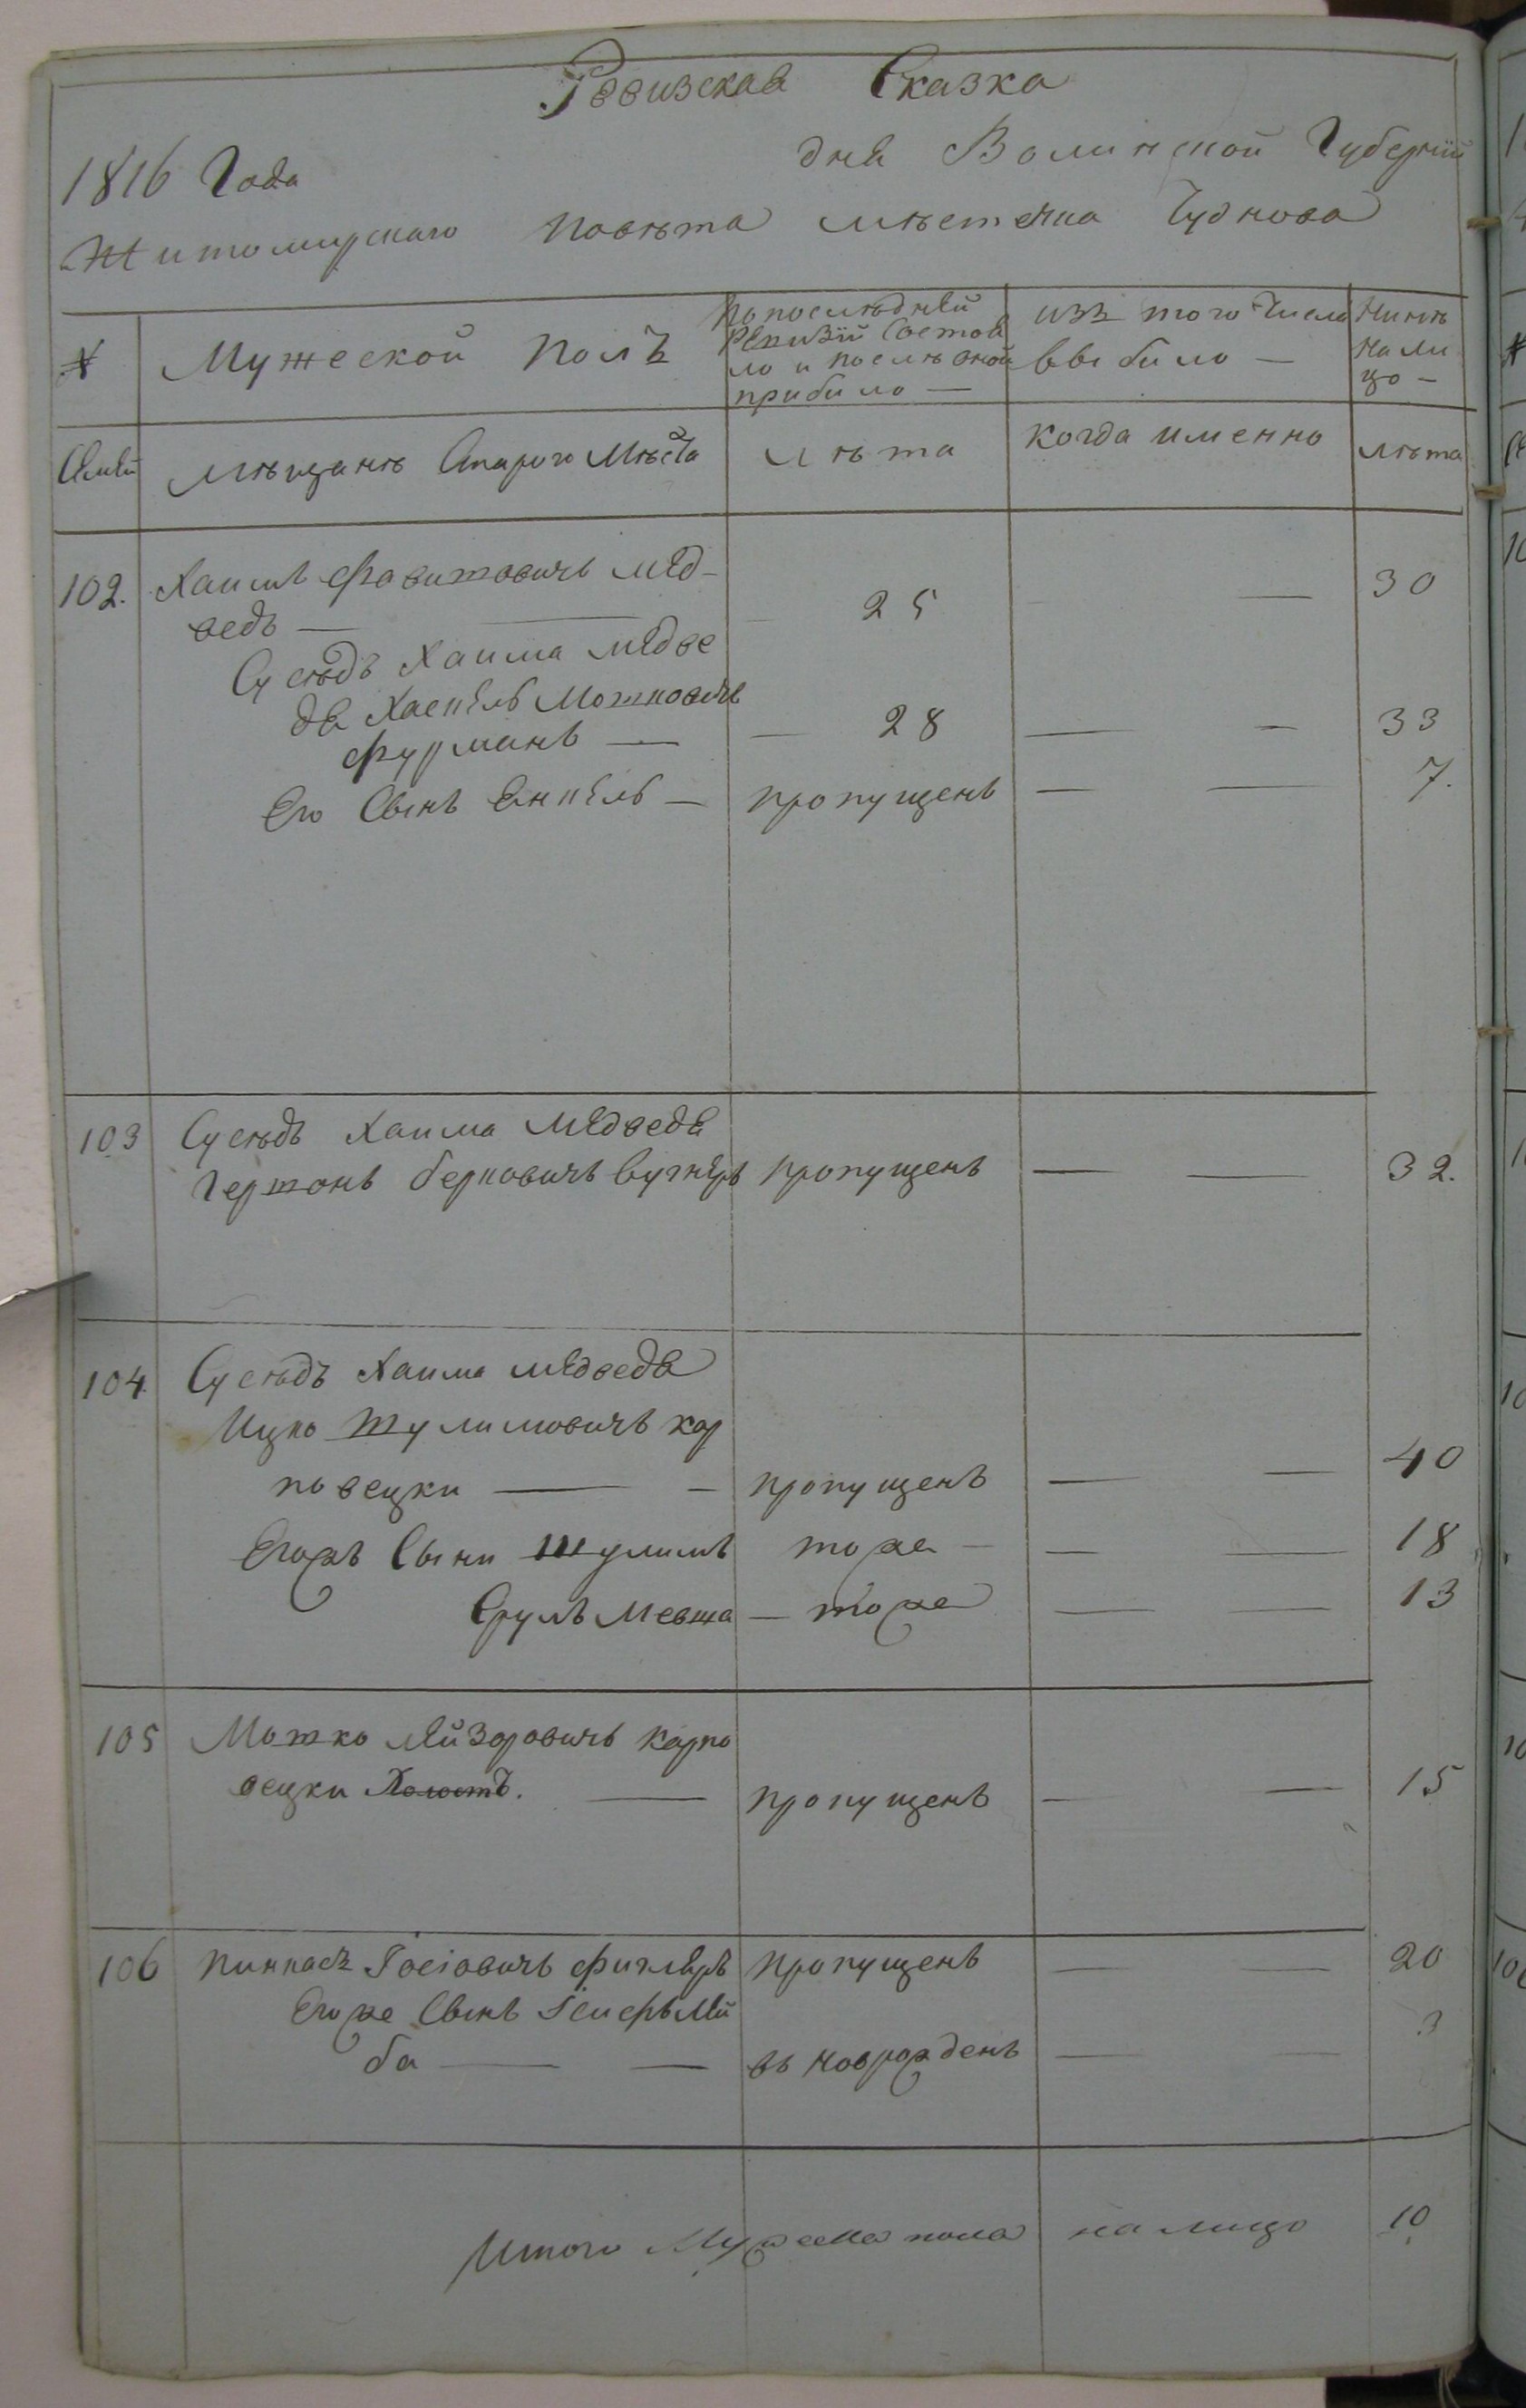 Ревизская Сказка
1816 Года дня Волинской Губернїи
Житомирскаго Повѣта мѣстечка Чуднова
№ Мужеской Полъ По последней Ревизїи Состояло и послѣ оной прибило — изъ того Числа выбило — Нинѣ на лицо —
Семей мѣщанѣ Стараго Мѣста лѣта когда именно лѣта
102. Хаимъ Фавитовичъ мед-
ведь — 25 — 30
Сусѣдъ Хаима медве
дя Хаскель Мошковичъ
Фурманъ — 28 — — 33
Его Сынъ Енкель — пропущенъ — — 7.
103 Сусѣдъ Хаима Медведя
Гершонъ Берковичъ пропущенъ — — 32.
104 Сусѣдъ Хаима медведя
Ицко Шулимовичъ кар
повецки — — пропущенъ — — 40
Егожъ Сыни Шулимъ тоже — — — 18
Сруль Мевша — тоже — — 13
105 Мошко лейзоровичъ карпо
вецки Холостъ. — пропущенъ — — 15
106 Пинкасъ Іосіовичъ Фиклеръ пропущенъ — — 20
Егоже Сынъ Лей
ба — — вь новрожденъ — — 3
Итого Мужеска пола на лицо 10